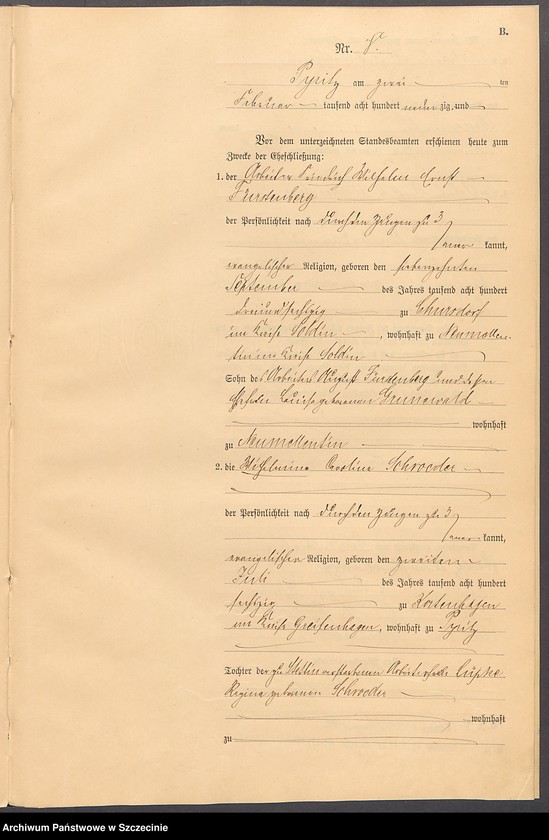 B.
Nr. 8.
Pyritz am zwei ten
Februar tausend acht hundert neun zig und
Vor dem unterzeichneten Standesbeamten erschienen heute zum
Zwecke der Eheschließung:
1. der Arbeiter Friedrich Wilhelm Ernst
Fürstenberg
der Persönlichkeit nach durch den Zeugen zu 3
aner kannt,
evangelischer Religion, geboren den siebenzehnten
September des Jahres tausend acht hundert
dreiundsechzig zu Chursdorf
im Kreise Soldin, wohnhaft zu Neumellen-
tin im Kreise Soldin
Sohn des Arbeiters August Fürstenberg und dessen
Ehefrau Louise geborenen Grunewald
wohnhaft
zu Neumellentin
2. die Wilhelmine Caroline Schroeder
der Persönlichkeit nach durch den Zeugen zu 3
aner kannt,
evangelischer Religion, geboren den zweiten
Juli des Jahres tausend acht hundert
sechzig zu Kortenhagen
im Kreise Greifenhagen, wohnhaft zu Pyritz
Tochter der zu Stettin verstorbenen
Regina geborenen Schroeder
wohnhaft
zu
Archiwum Państwowe w Szczecinie